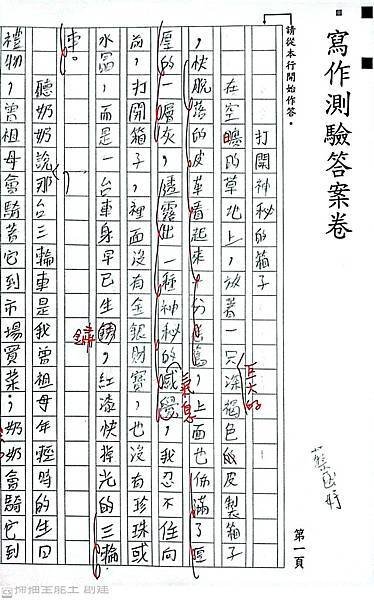 寫作測驗答案卷
請從本行開始作答。
打開神秘的箱子
在空曠的草地上，放著一只深褐色的皮製箱子
巨大的
，快脫落的皮革看起來十分舊，上面也佈滿了
厚的一層灰，透露出一種神秘的感覺，我忍不住向
氣息
前，打開箱子，裡面沒有金銀財寶，也沒有珍珠或
水晶，而是一台車身早已生鏽，紅漆快掉光的三輪
鏽
車。
聽奶奶說，那台三輪車是我曾祖母年輕時的生日
禮物，曾祖母會騎著它到市場買菜，奶奶會騎它到
第一頁
掃描全能王 創建